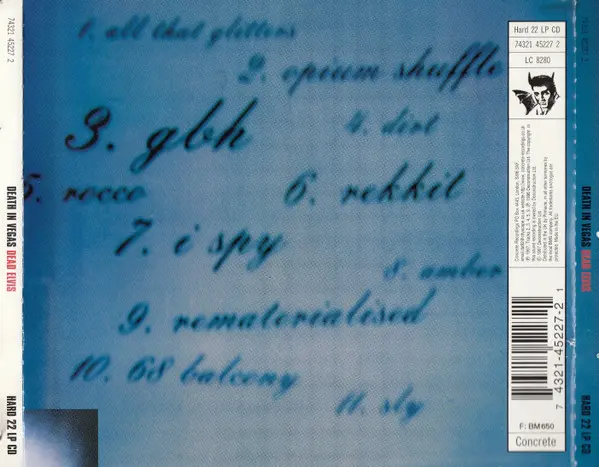 74321 45227 2
DEATH IN VEGAS DEAD ELVIS
HARD 22 LP CD
1. all that glitters
2. opium shuffle
3. gbh
4. dirt
5. rocco
6. rekkit
7. i spy
8. amber
9. rematerialised
10. 68 balcony
11. sly
Hard 22 LP CD
74321 45227 2
LC 8280
7 43 21-45227-2 1
F: BM650
Concrete
74321 45227 2
DEATH IN VEGAS DEAD ELVIS
HARD 22 LP CD